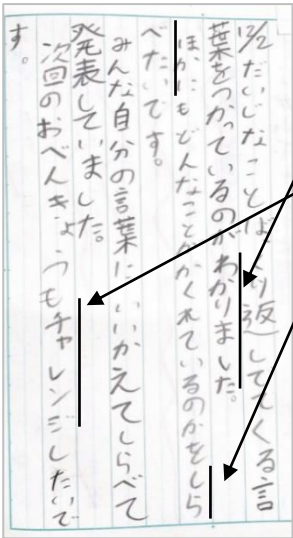 12/2 だいじなことばはくり返してでてくる言
葉をつかっているのがわかりました。
ほかにもどんなことがかくれているのかをしら
べたいです。
みんな自分の言葉にいいかえてしらべて
発表していました。
次回のおべんきょうもチャレンジしたいで
す。